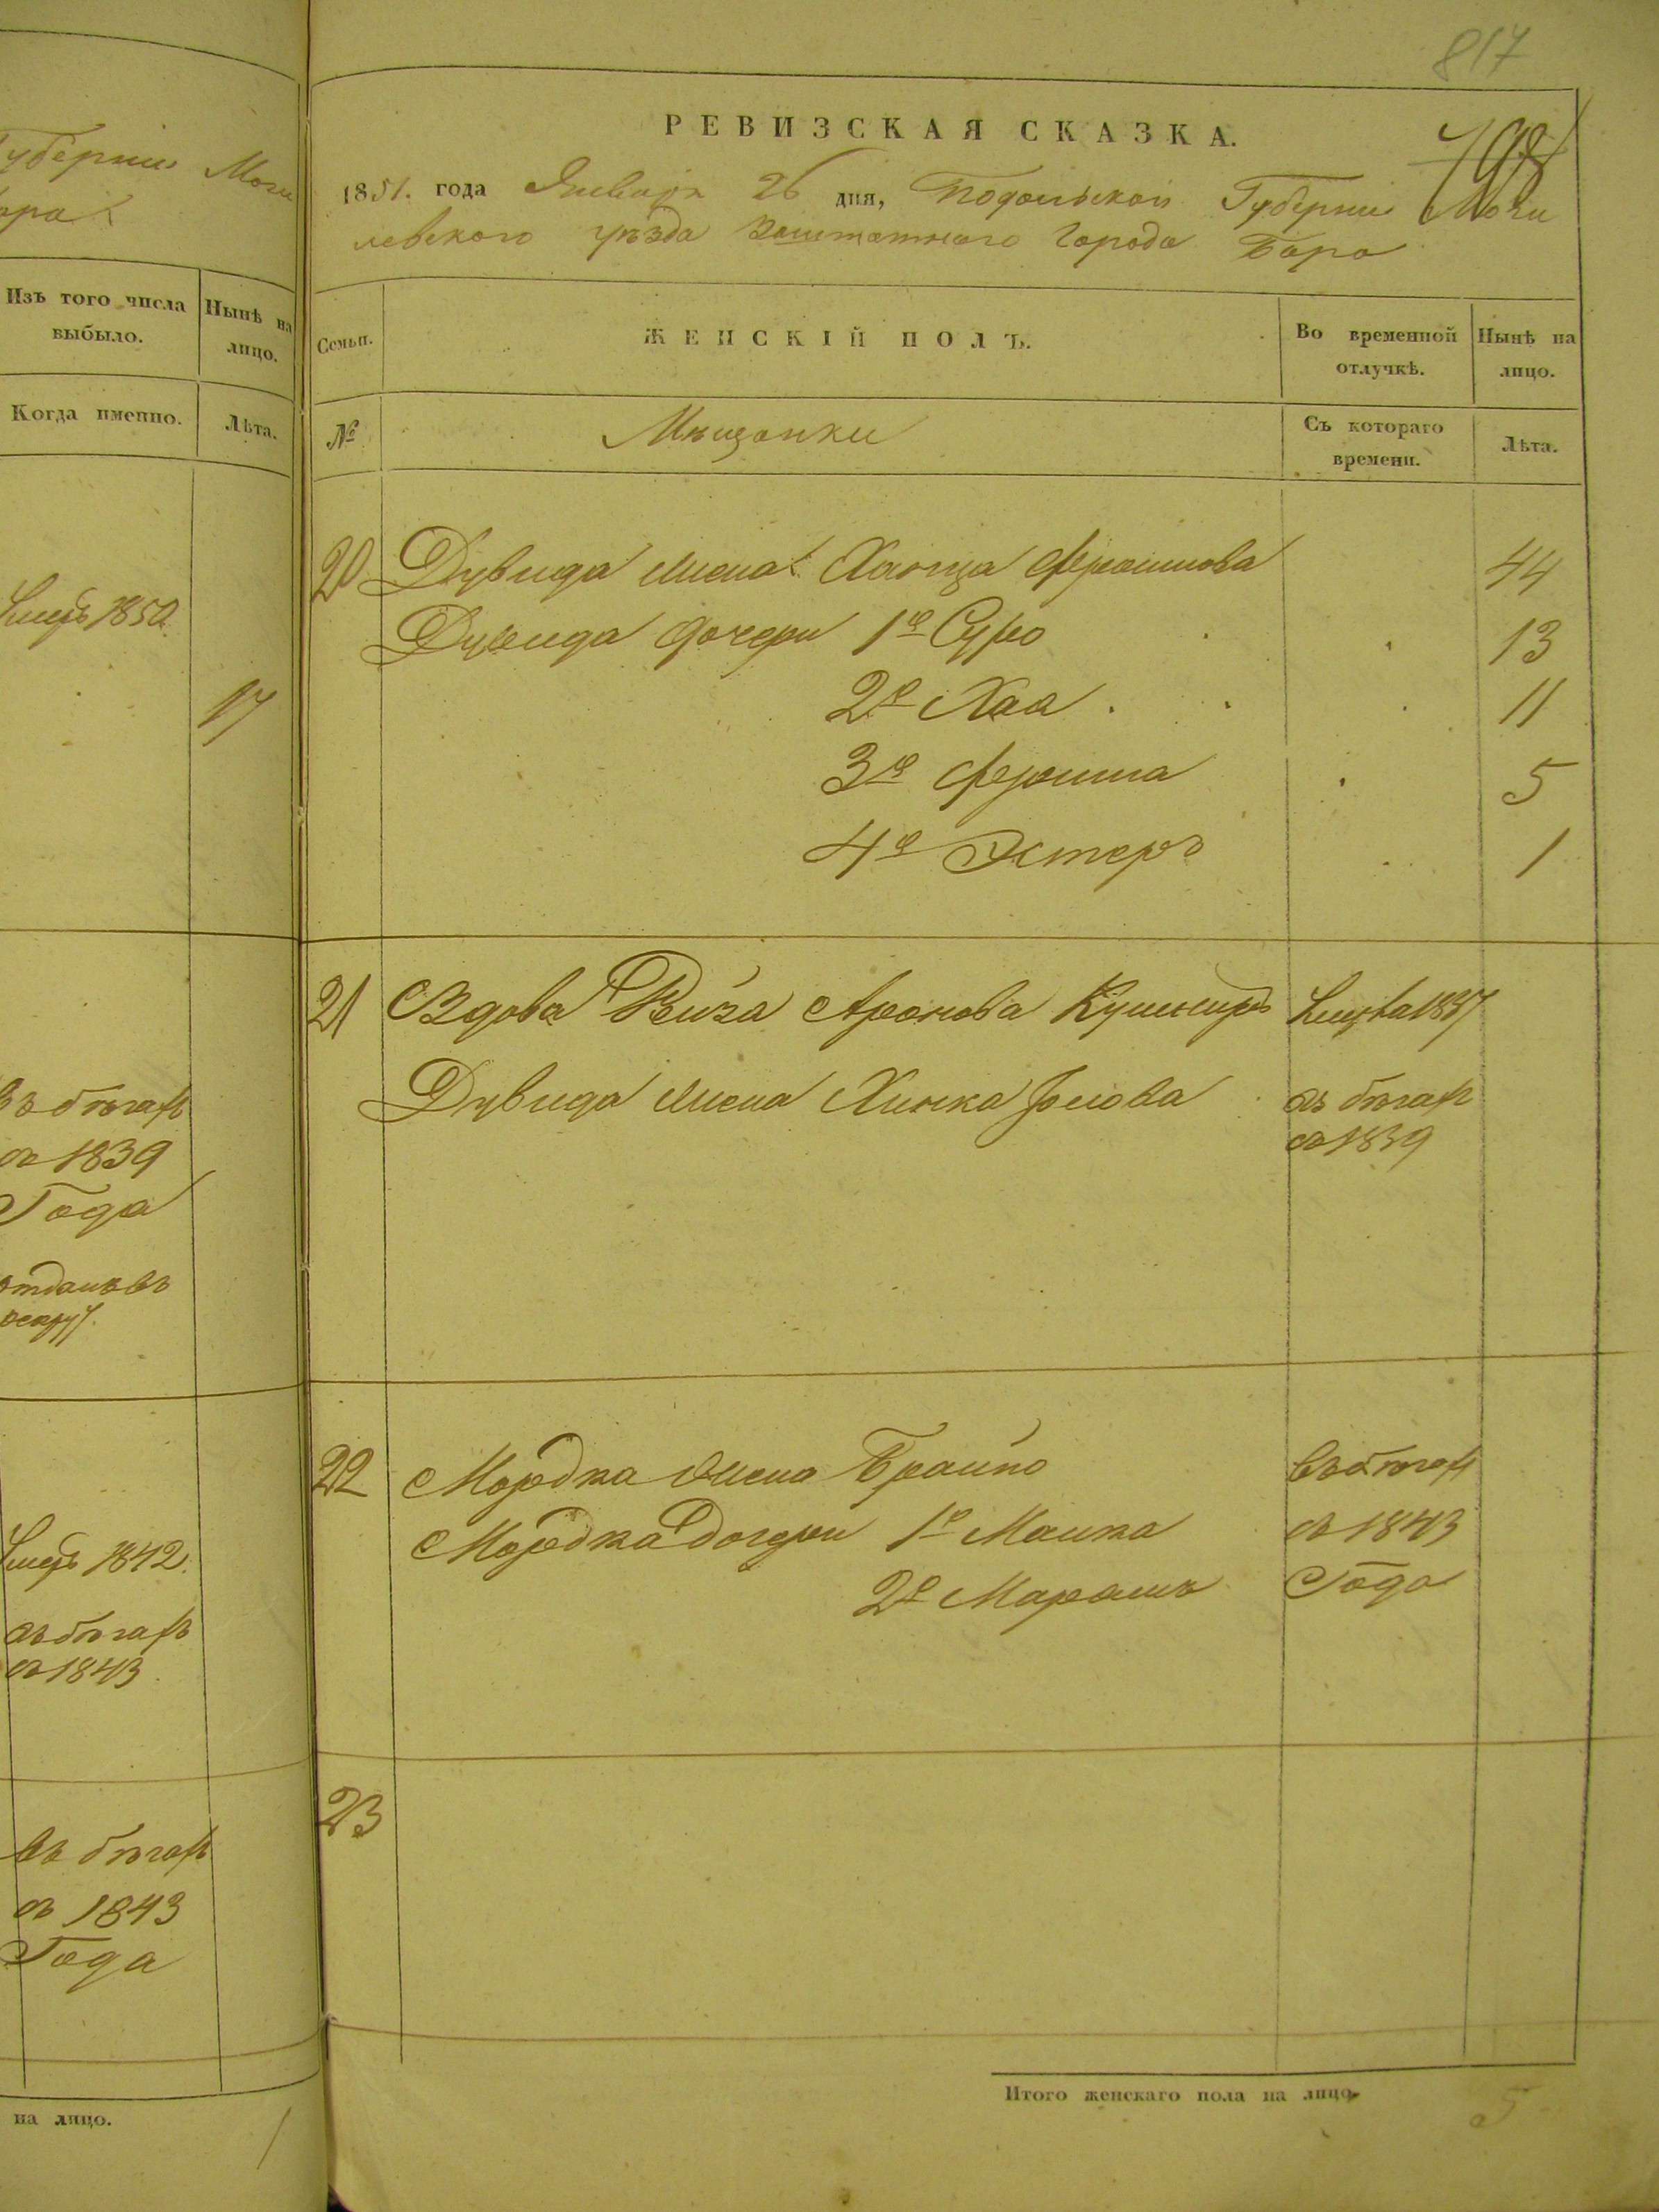 Губерніи Моги
Бара
Изъ того числа выбыло.
Нынѣ на лицо.
Когда именно.
Лѣта.
Умеръ 1850.
17
Въ бѣгахъ
съ 1839
Года
отданъ въ
рекруты
Умеръ 1842.
въ бѣгахъ
съ 1843
въ бѣгахъ
съ 1843
Года
на лицо. 1
817
798
РЕВИЗСКАЯ СКАЗКА.
1851. года Января 26 дня, Подольской Губерніи Моги
левского уѣзда Заштатного Города Бара
Семьи.
ЖЕНСКІЙ ПОЛЪ.
Во временной отлучкѣ.
Нынѣ на лицо.
№
Мѣщанки
Съ котораго времени.
Лѣта.
20 Дувида Жена 44
Дувида дочери 1я Сура 13
2я Хая 11
3я 5
4я Эстеръ 1
21 Вдова Аронова Кушниръ Умерла 1837
Дувида жена Хинка въ бѣгахъ
съ 1839
22 Мордка жена въ бѣгахъ
Мордка дочери 1я Малка съ 1843
2я Года
23
Итого женскаго пола на лицо. 5